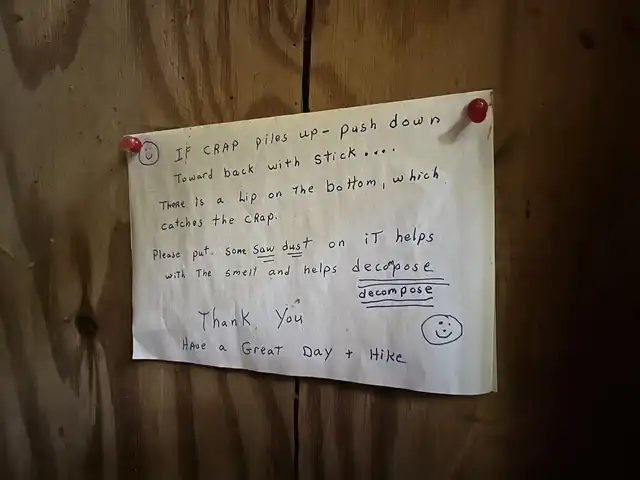 IF CRAP piles up - push down
Toward back with stick....
There is a Lip on The bottom, which
catches the CRap.
Please put some saw dust on iT helps
with The smell and helps decompose
decompose
Thank You
HAve a Great Day + Hike